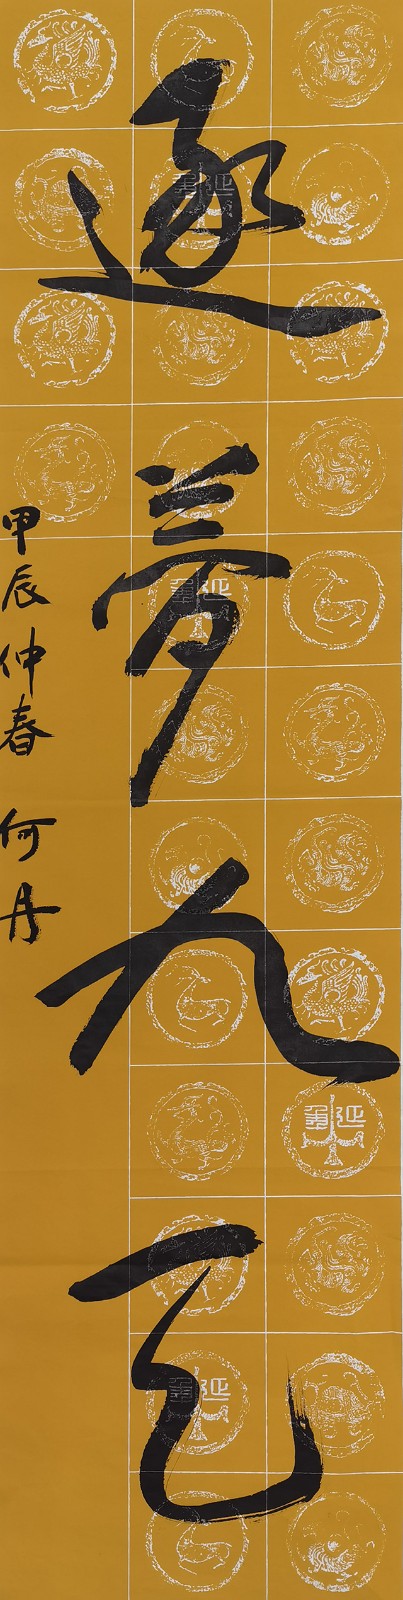 逐夢九天
甲辰仲春 何丹